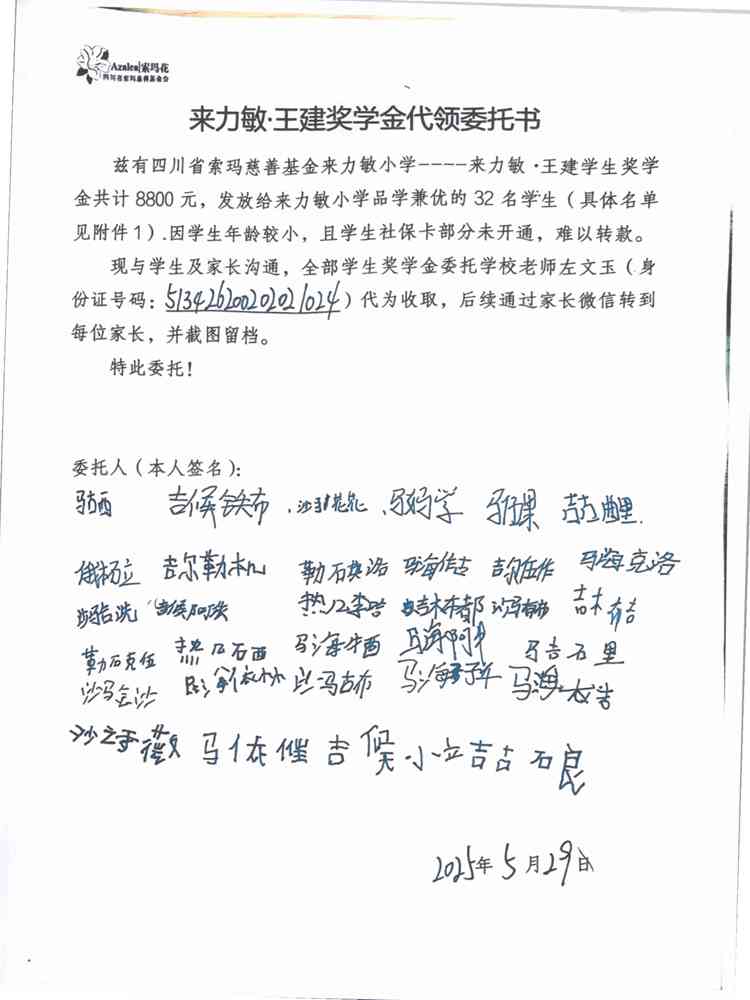 Azalea|索玛花
四川省索玛慈善基金会
来力敏·王建奖学金代领委托书
兹有四川省索玛慈善基金来力敏小学----来力敏·王建学生奖学
金共计8800元，发放给来力敏小学品学兼优的32名学生（具体名单
见附件1）.因学生年龄较小，且学生社保卡部分未开通，难以转款。
现与学生及家长沟通，全部学生奖学金委托学校老师左文玉（身
份证号码：513426200202021024）代为收取，后续通过家长微信转到
每位家长，并截图留档。
特此委托！
委托人（本人签名）：
吉候铁布 马妈学
吉尔勒木几 勒石其洛 马海克洛
吉木布都 吉木布吉
勒石克伍 热几石西 马海牛西 马吉石里
沙马金沙 马海
马依催吉侯小立吉古石良
2025年5月29日